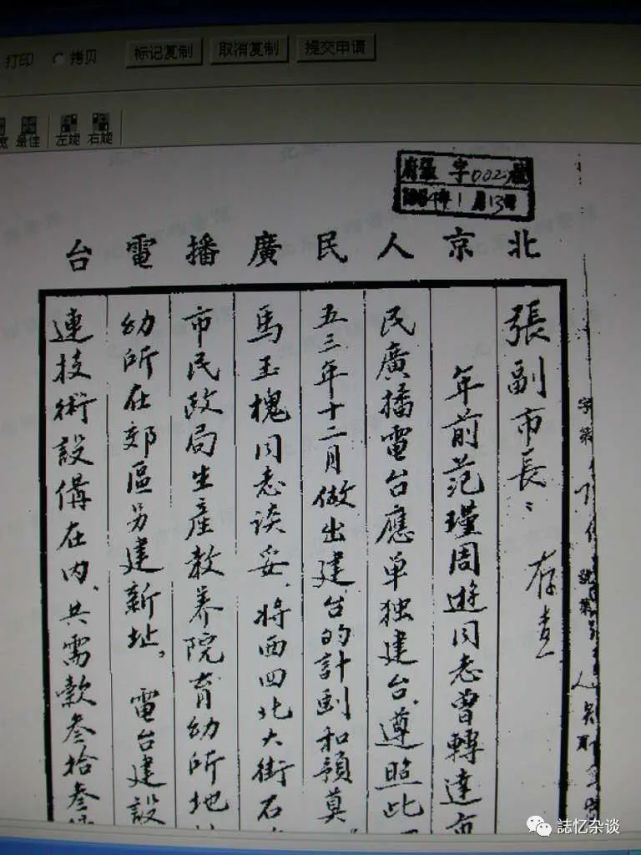 打印 拷贝 标记复制 取消复制 提交申请
最佳 左旋 右旋
字002號
1954年1月13日
北京人民廣播電台
張副市長：
存查
年前范瑾周遊同志曾轉達市
民廣播電台應单独建台，遵照此
五三年十二月做出建台的計劃和預算
馬玉槐同志谈妥，将西四北大街石
市民政局生産教养院育幼所地
幼所在郊區另建新址。電台建設
連技術設備在内，共需款叁拾叁
誌忆杂谈